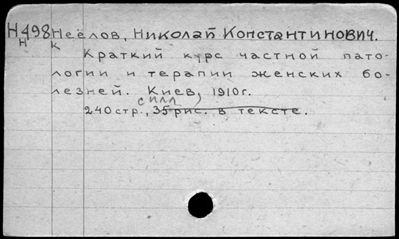 Н498 Неёлов, Николай Константинович.
Н К
Краткий курс частной пато-
логии и терапии женских бо-
лезней. Киев, 1910г.
с илл,
240 стр., 35 рис. в тексте.